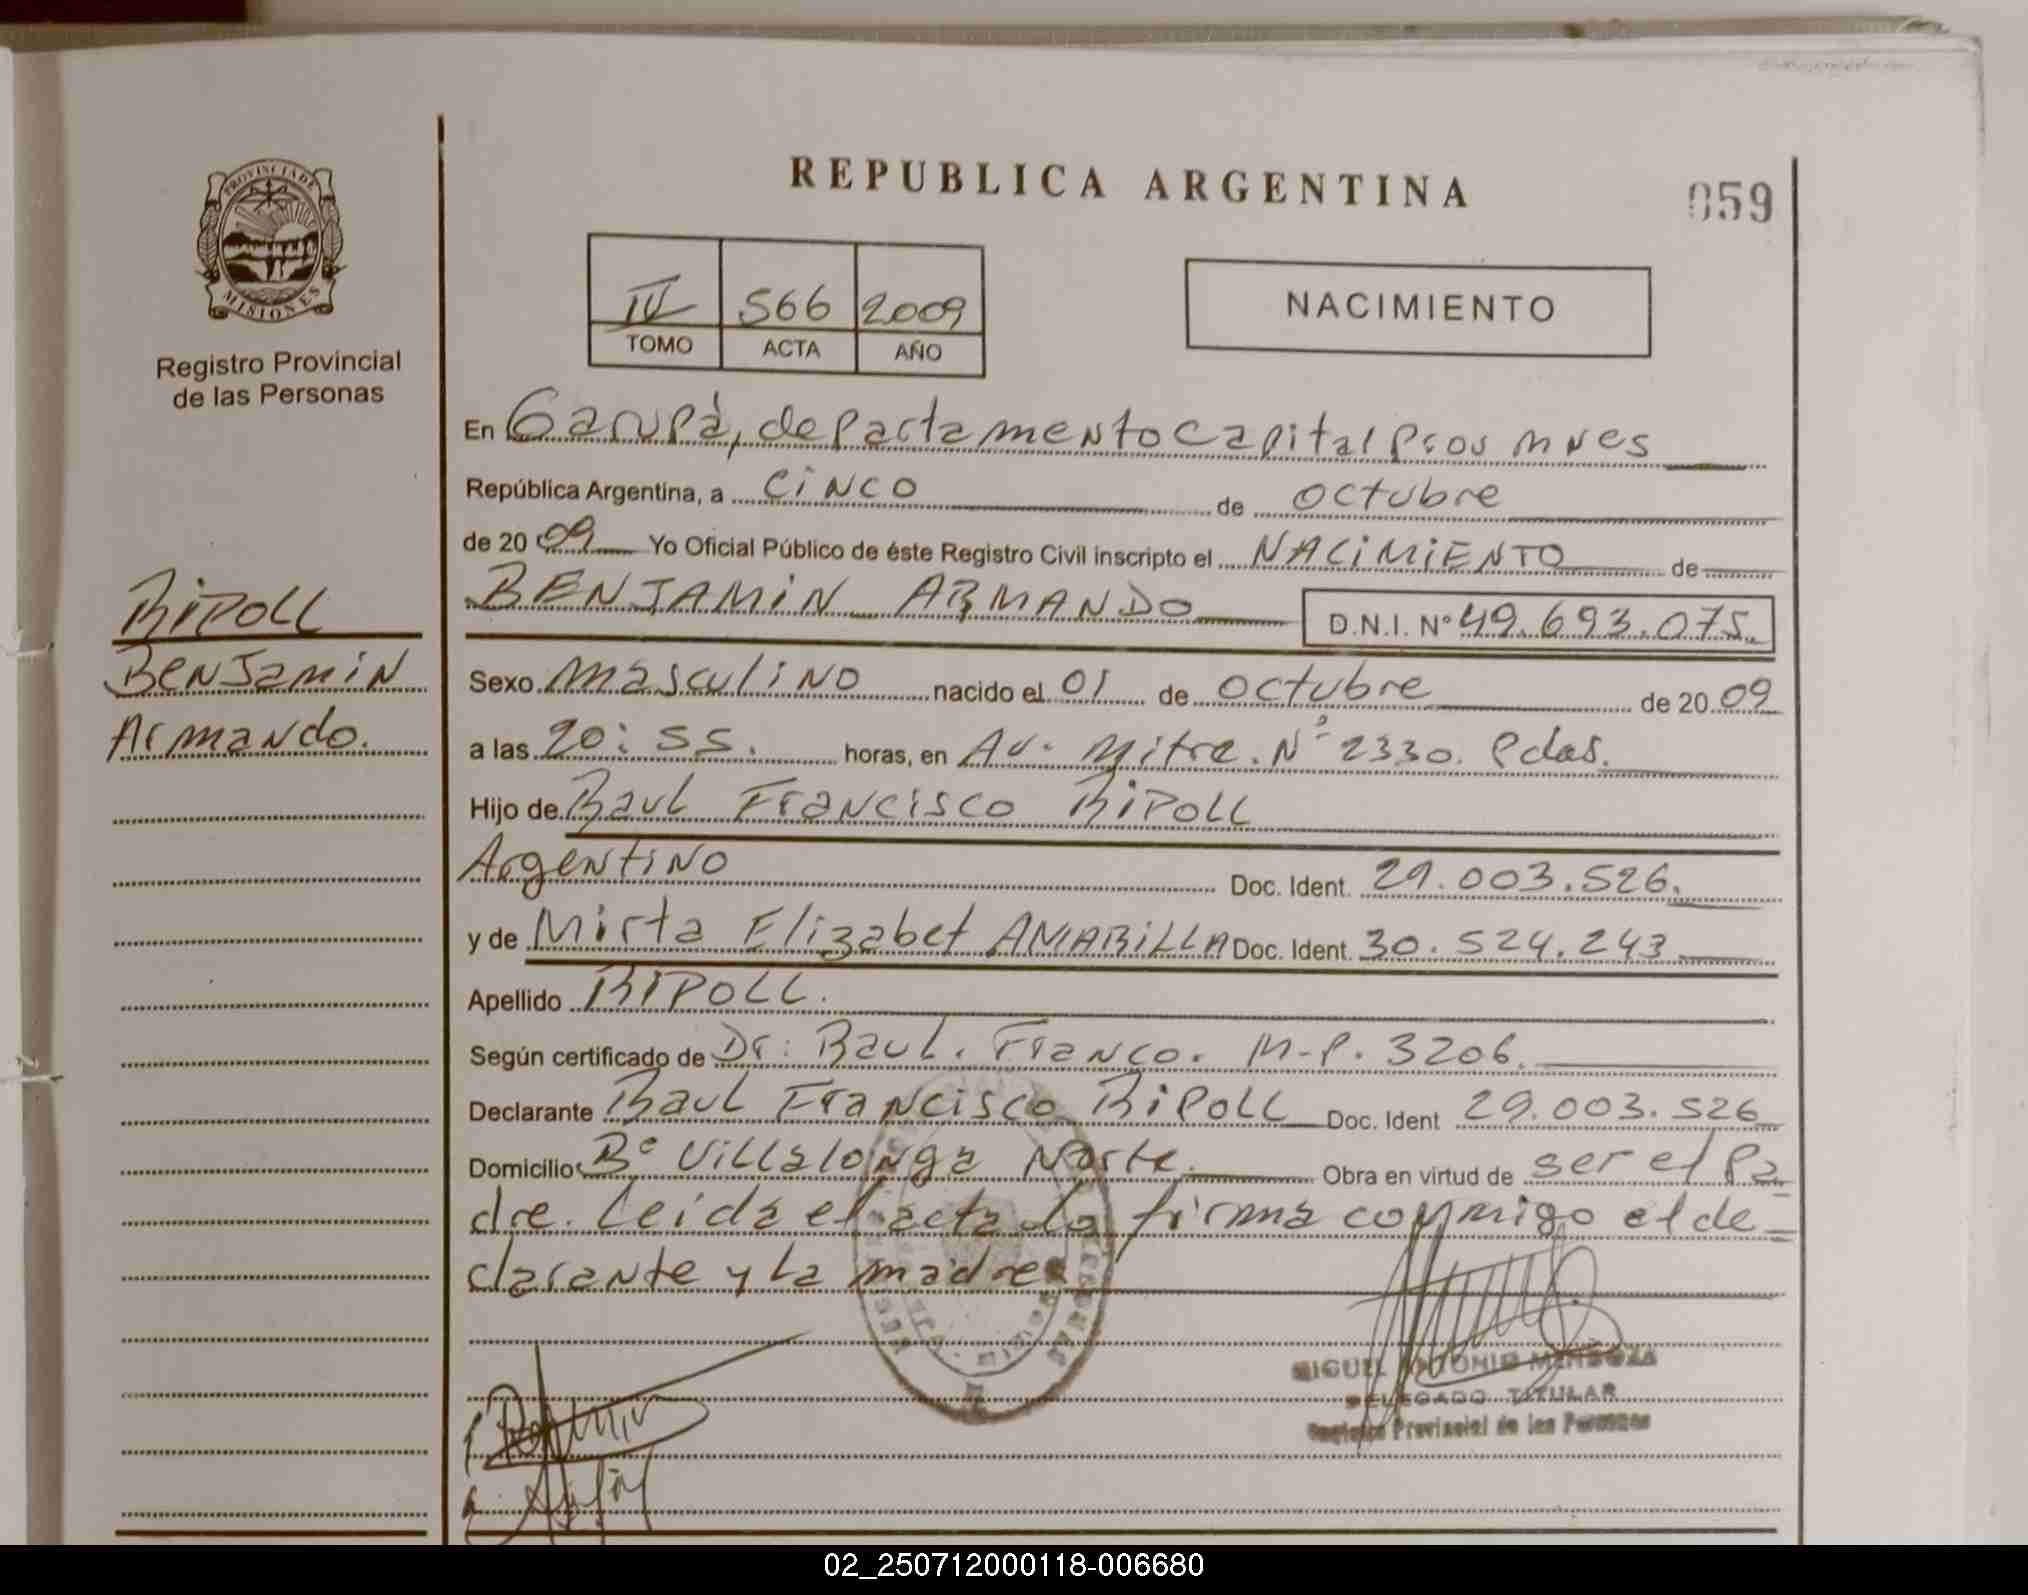 REPUBLICA ARGENTINA
059
PROVINCIA DE
MISIONES
Registro Provincial
de las Personas
IV 566 2009
TOMO ACTA AÑO
NACIMIENTO
En Garupá, departamento Capital Prov Mnes
República Argentina, a cinco de octubre
de 20 09 Yo Oficial Público de éste Registro Civil inscripto el NACIMIENTO de
BENJAMIN ARMANDO D.N.I. Nº 49.693.075
Ripoll
Benjamin
Armando.
Sexo masculino nacido el 01 de octubre de 20 09
a las 20:55. horas, en Av. Mitre. Nº 2330. Pdas.
Hijo de Raul Francisco Ripoll
Argentino Doc. Ident. 29.003.526.
y de Mirta Elizabet AMARILLA Doc. Ident. 30.524.243
Apellido RIPOLL.
Según certificado de Dr: Raul. Franco. M-P. 3206.
Declarante Raul Francisco Ripoll Doc. Ident 29.003.526
Domicilio Bº Villalonga Norte. Obra en virtud de ser el Pa
dre. Leida el acta la firma conmigo el de
clarante y la madre
MIGUEL ANTONIO MENDOZA
DELEGADO TITULAR
Registro Provincial de las Personas
02_250712000118-006680